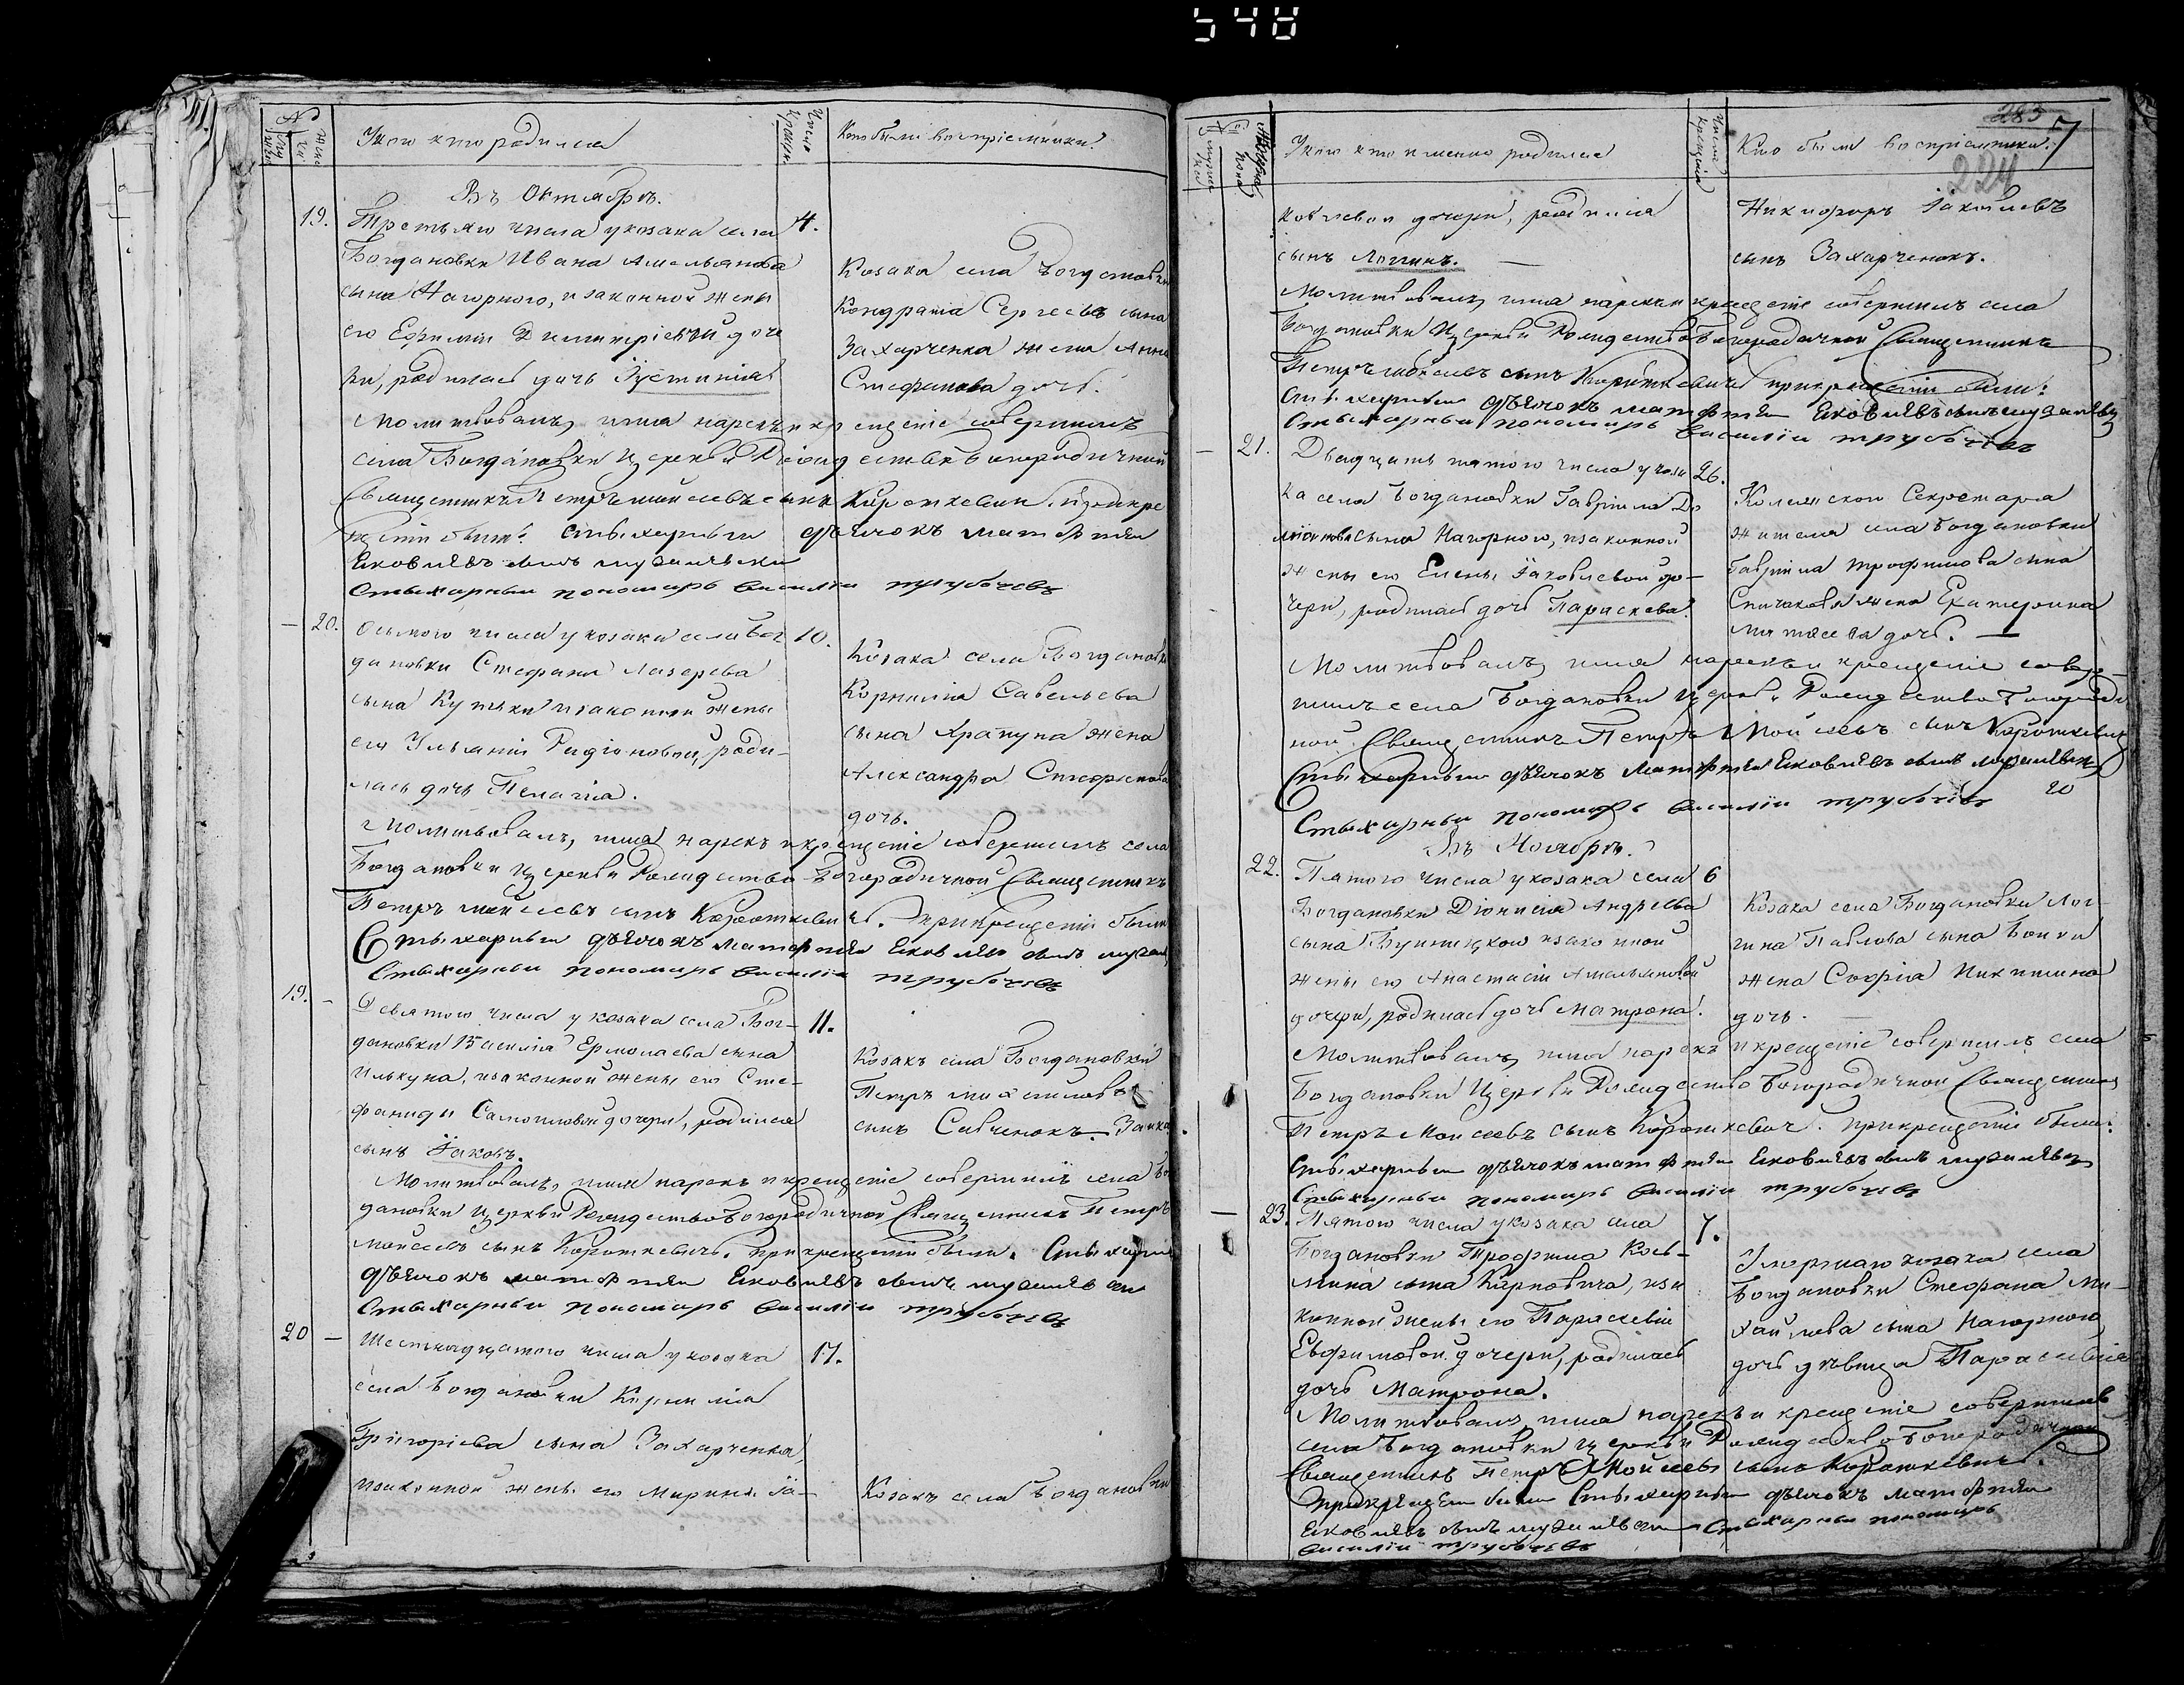 548
№
Муж
Жен
У кого кто родился
Число Крещен
Кто были восприемники?
Въ Октябрѣ.
19.
Третьяго числа у козака села
4.
Богдановки Ивана Амельянова
сына Нагорного, и законной жены
его Ефимии Димитріевой доче
ри, родилась дочь Іустинія
Козака села Богдановки
Кондратія Сергеева сына
Захарченка жена Анна
Стефанова дочь.
Молитвовалъ, имя нарекъ и крещеніе совершилъ
села Богдановки церкви Рождество Богородичной
Священникъ Петръ Мойсеевъ сынъ Короткевич. При кре
щеніи были: Стыхарный дьячокъ Матфей
Яковлевъ сынъ
Стыхарный пономарь Василій Трубачевъ
20.
Осьмого числа у козака села Бог
10.
дановки Стефана Лазорева
сына Кутьки и законной жены
его Ульяніи Радіоновой, роди-
лась дочь Пелагіа.
Козака села Богдановки
Корнилія Савельева
сына Храпуна жена
Александра Стефанова
дочь.
Молитвовалъ, имя нарекъ и крещеніе совершилъ села
Богдановки церкви Рождество Богородичной Священникъ
Петръ Мойсеевъ сынъ Короткевичъ. При крещеніи были
Стыхарный дьячокъ Матфей Яковлевъ сынъ
Стыхарный пономарь Василій Трубачевъ
19.
Девятого числа у козака села Бог-
11.
дановки Василія Ермолаева сына
Илькуна, и законной жены его Сте-
фаниды Самойловой дочери, родился
сынъ Іаковъ.
Козакъ села Богдановки
Петръ
сынъ Савченокъ. Заика
Молитвовалъ, имя нарекъ и крещеніе совершилъ села Бог
дановки церкви Рождество Богородичной Священникъ Петръ
Мойсеевъ сынъ Короткевичъ. При крещеніи были. Стыхарный
дьячокъ Матфей Яковлевъ сынъ
Стыхарный пономарь Василій Трубачевъ
20
Шестнадцатого числа у козака
17.
села Богдановки Корнилія
Григоріева сына Захарченка,
и законной жены его Марины Іа-
Козакъ села Богдановки
283
7
224
У кого кто именно родился
Число крещенія
Кто были восприемники.
ковлевой дочери, родился
сынъ Логгинъ.
Никифоръ Іаковлевъ
сынъ Захарченокъ.
Молитвовалъ, имя нарекъ и крещеніе совершилъ села
Богдановки церкви Рождество Богородичной Священникъ
Петръ Мойсеевъ сынъ Короткевичъ при крещеніи были:
Стыхарный дьячокъ Матфей Яковлевъ сынъ
Стыхарный пономарь Василій Трубачевъ
21.
Двадцать пятого числа у коза
26.
ка села Богдановки Гавріила
сына Нагорного, и законной
жены его Елены Іаковлевой до-
чери, родилась дочь Параскева.
Колежского Секретаря
жителя села Богдановки
Гавріила Трофимова сына
жена Екатерина
дочь.
Молитвовалъ, имя нарекъ и крещеніе совер-
шилъ села Богдановки церкви Рождество Богороди
ной Священникъ Петръ Мойсеевъ сынъ Короткевичъ
Стыхарный дьячокъ Матфей Яковлевъ сынъ
Стыхарный пономарь Василій Трубачевъ
20
Въ Ноябрѣ.
22.
Пятого числа у козака села
6
Богдановки Діонисія Андреева
сына и законной
жены его Анастасіи Амельяновой
дочери, родилась дочь Матрона.
Козака села Богдановки Лог-
гина Павлова сына Бойки
жена Софія Никитина
дочь.
Молитвовалъ, имя нарекъ и крещеніе совершилъ села
Богдановки церкви Рождество Богородичной Священникъ
Петръ Мойсеевъ сынъ Короткевичъ. При крещеніи были:
Стыхарный дьячокъ Матфей Яковлевъ сынъ
Стыхарный пономарь Василій Трубачевъ
23.
Пятого числа у козака села
7.
Богдановки Трофима Козь-
мина сына Карповича, и за
конной жены его Параскевіи
Евфимовой дочери, родилась
дочь Матрона.
Умершаго козака села
Богдановки Стефана Ми-
хайлова сына Нагорного
дочь дѣвица Параскевія
Молитвовалъ, имя нарекъ и крещеніе совершилъ
села Богдановки церкви Рождество Богородичной
Священникъ Петръ Мойсеевъ сынъ Короткевичъ.
При крещеніи были Стыхарный дьячокъ Матфей
Яковлевъ сынъ Стыхарный пономарь
Василій Трубачевъ